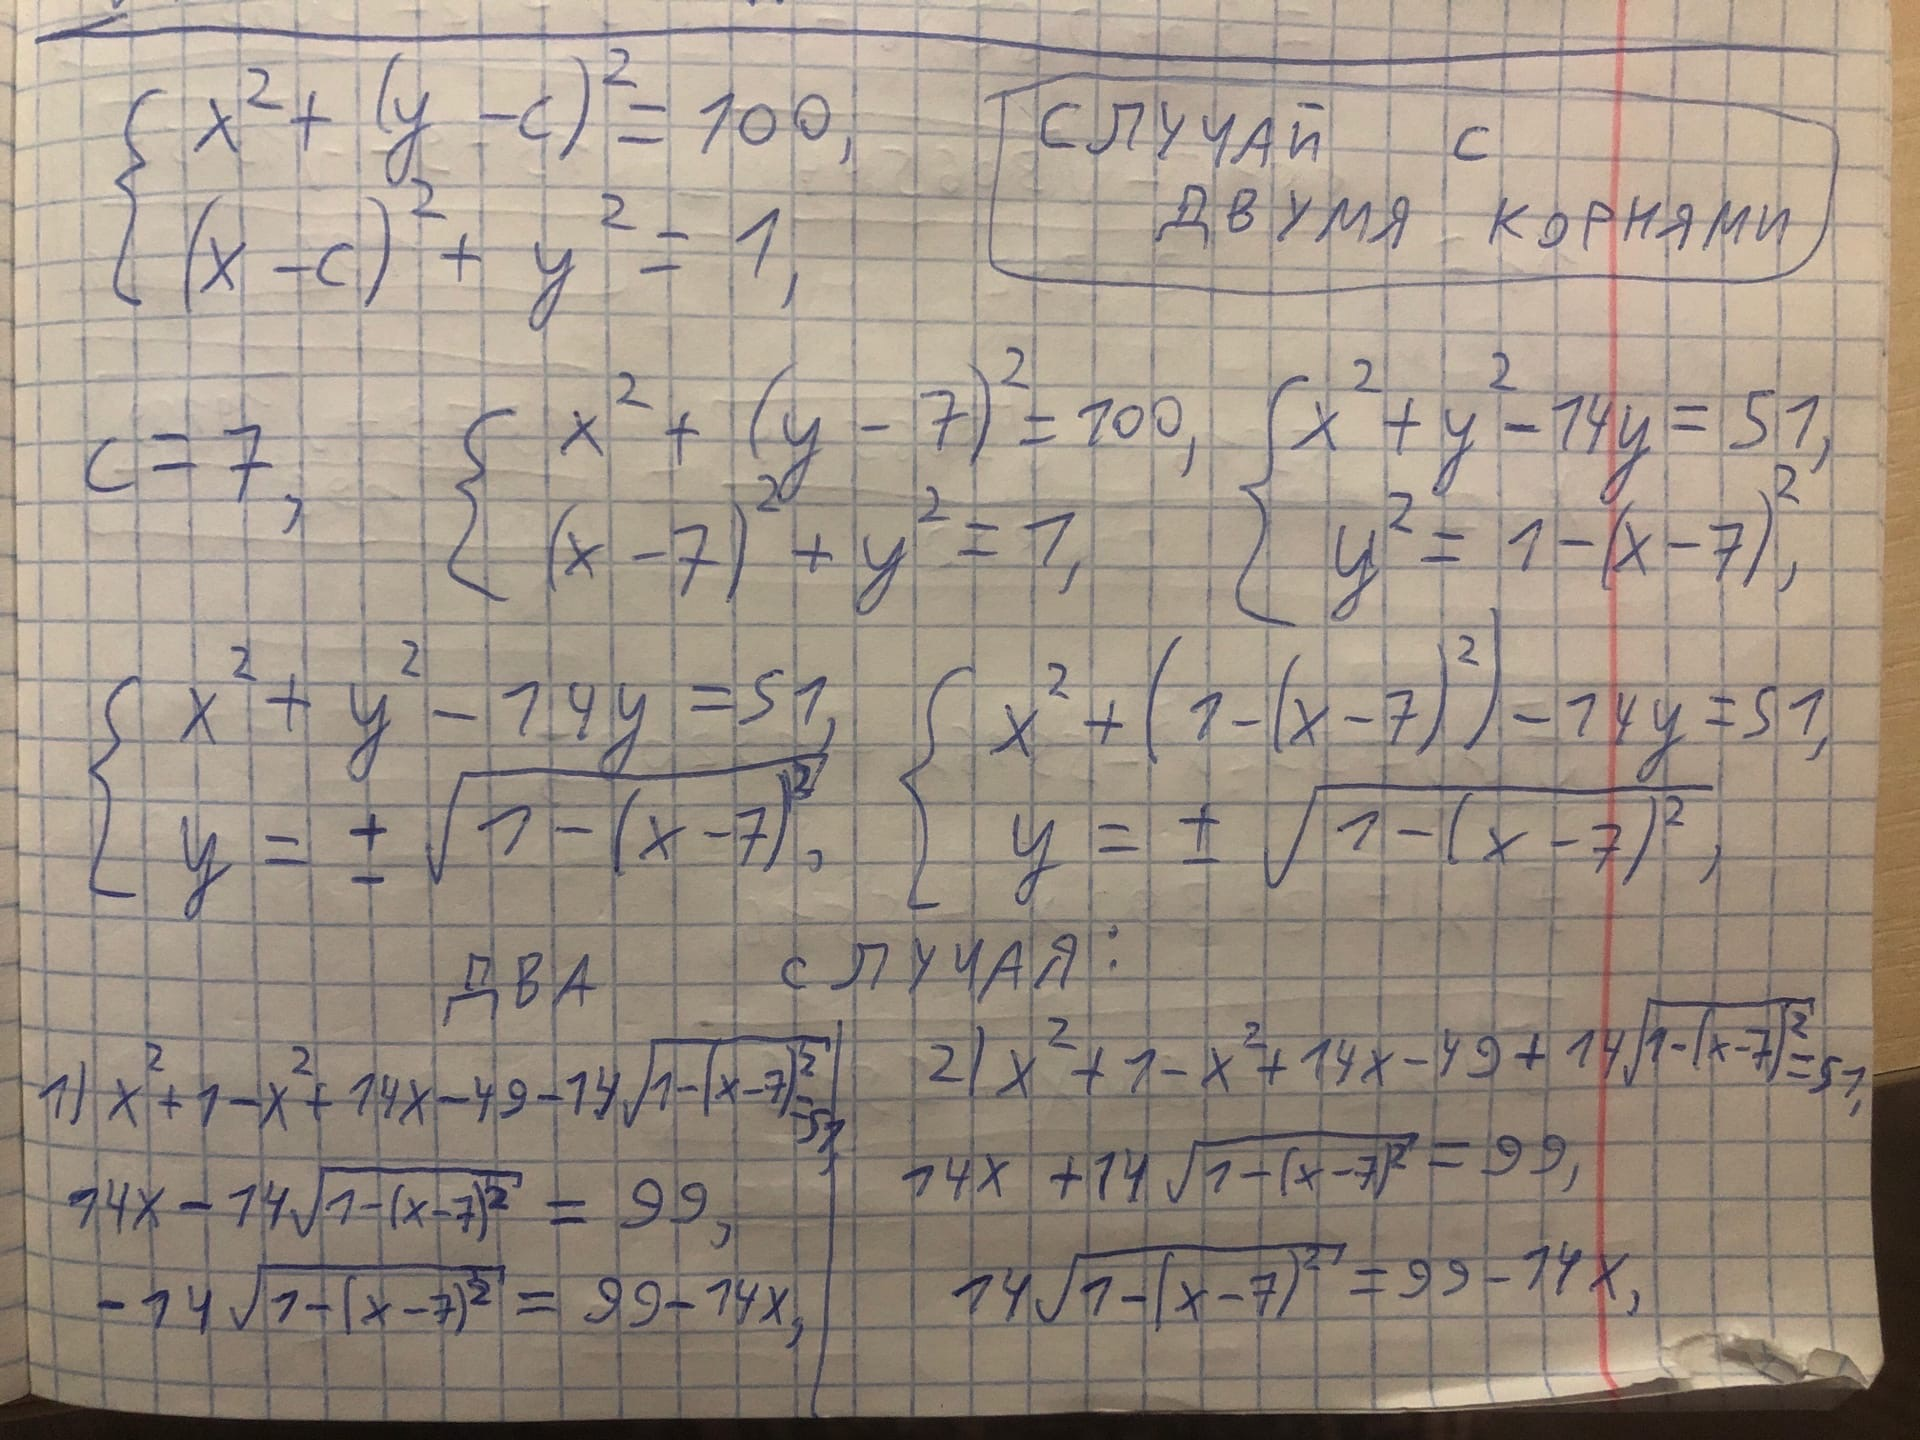 x² + (y - c)² = 100,
(x - c)² + y² = 1,
СЛУЧАЙ С
ДВУМЯ КОРНЯМИ
c = 7,
x² + (y - 7)² = 100,
(x - 7)² + y² = 1,
x² + y² - 14y = 51,
y² = 1 - (x - 7)²,
x² + y² - 14y = 51,
y = ± √(1 - (x - 7)²),
x² + (1 - (x - 7)²) - 14y = 51,
y = ± √(1 - (x - 7)²),
ДВА СЛУЧАЯ:
1) x² + 1 - x² + 14x - 49 - 14√(1 - (x - 7)²) = 51,
14x - 14√(1 - (x - 7)²) = 99,
- 14√(1 - (x - 7)²) = 99 - 14x,
2) x² + 1 - x² + 14x - 49 + 14√(1 - (x - 7)²) = 51,
14x + 14√(1 - (x - 7)²) = 99,
14√(1 - (x - 7)²) = 99 - 14x,